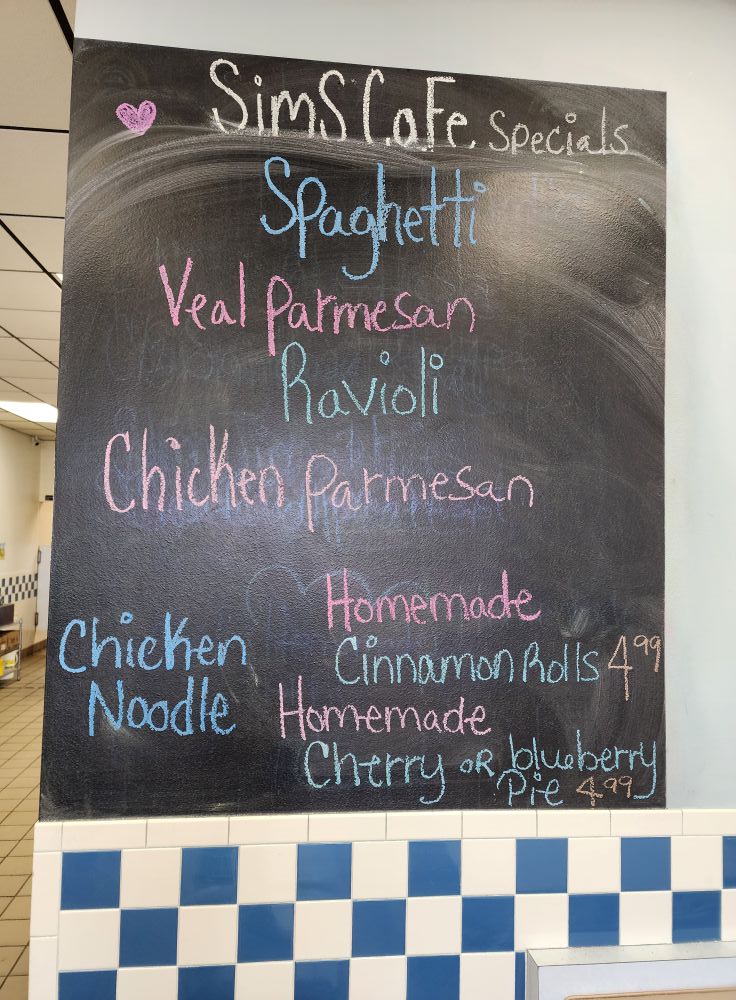 SimS CaFe. Specials
Spaghetti
Veal Parmesan
Ravioli
Chicken Parmesan
Chicken
Noodle
Homemade
Cinnamon Rolls 4.99
Homemade
Cherry OR blueberry
Pie 4.99